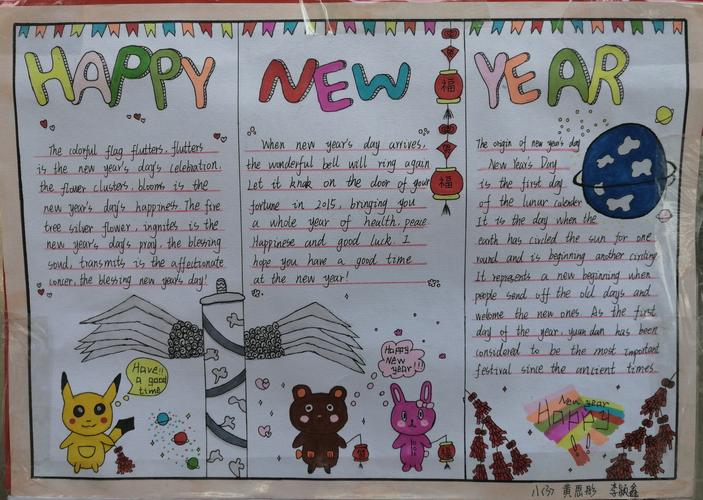 HAPPY NEW YEAR
The colorful flag flutters, flutters
is the new year's day's celebration.
the flower clusters, blooms is the
new year's day's happiness. The fire
tree silver flower, ingnites is the
new year's day's pray, the blessing
soud, transmits is the affectionate
concer, the blessing new year's day!
Have!!
a good
time
When new year's day arrives,
the wonderful bell will ring again
Let it knak on the door of your
fortune in 2015, bringing you
a whole year of health, peace
Happinese and good luck. I
hope you have a good time
at the new year!
福
福
Happy
New
year!!!
The origin of new year's day
New Year's Day
is the first day
of the lunar calender
It is the day when the
earth has circled the sun for one
round and is beginning another circling
It represents a new beginning when
people send off the old days and
welcome the new ones. As the first
day of the year, yuan dan has been
considered to be the most important
festival since the ancient times.
New year
Happy
!!
八(3) 黄思彤 李颖鑫